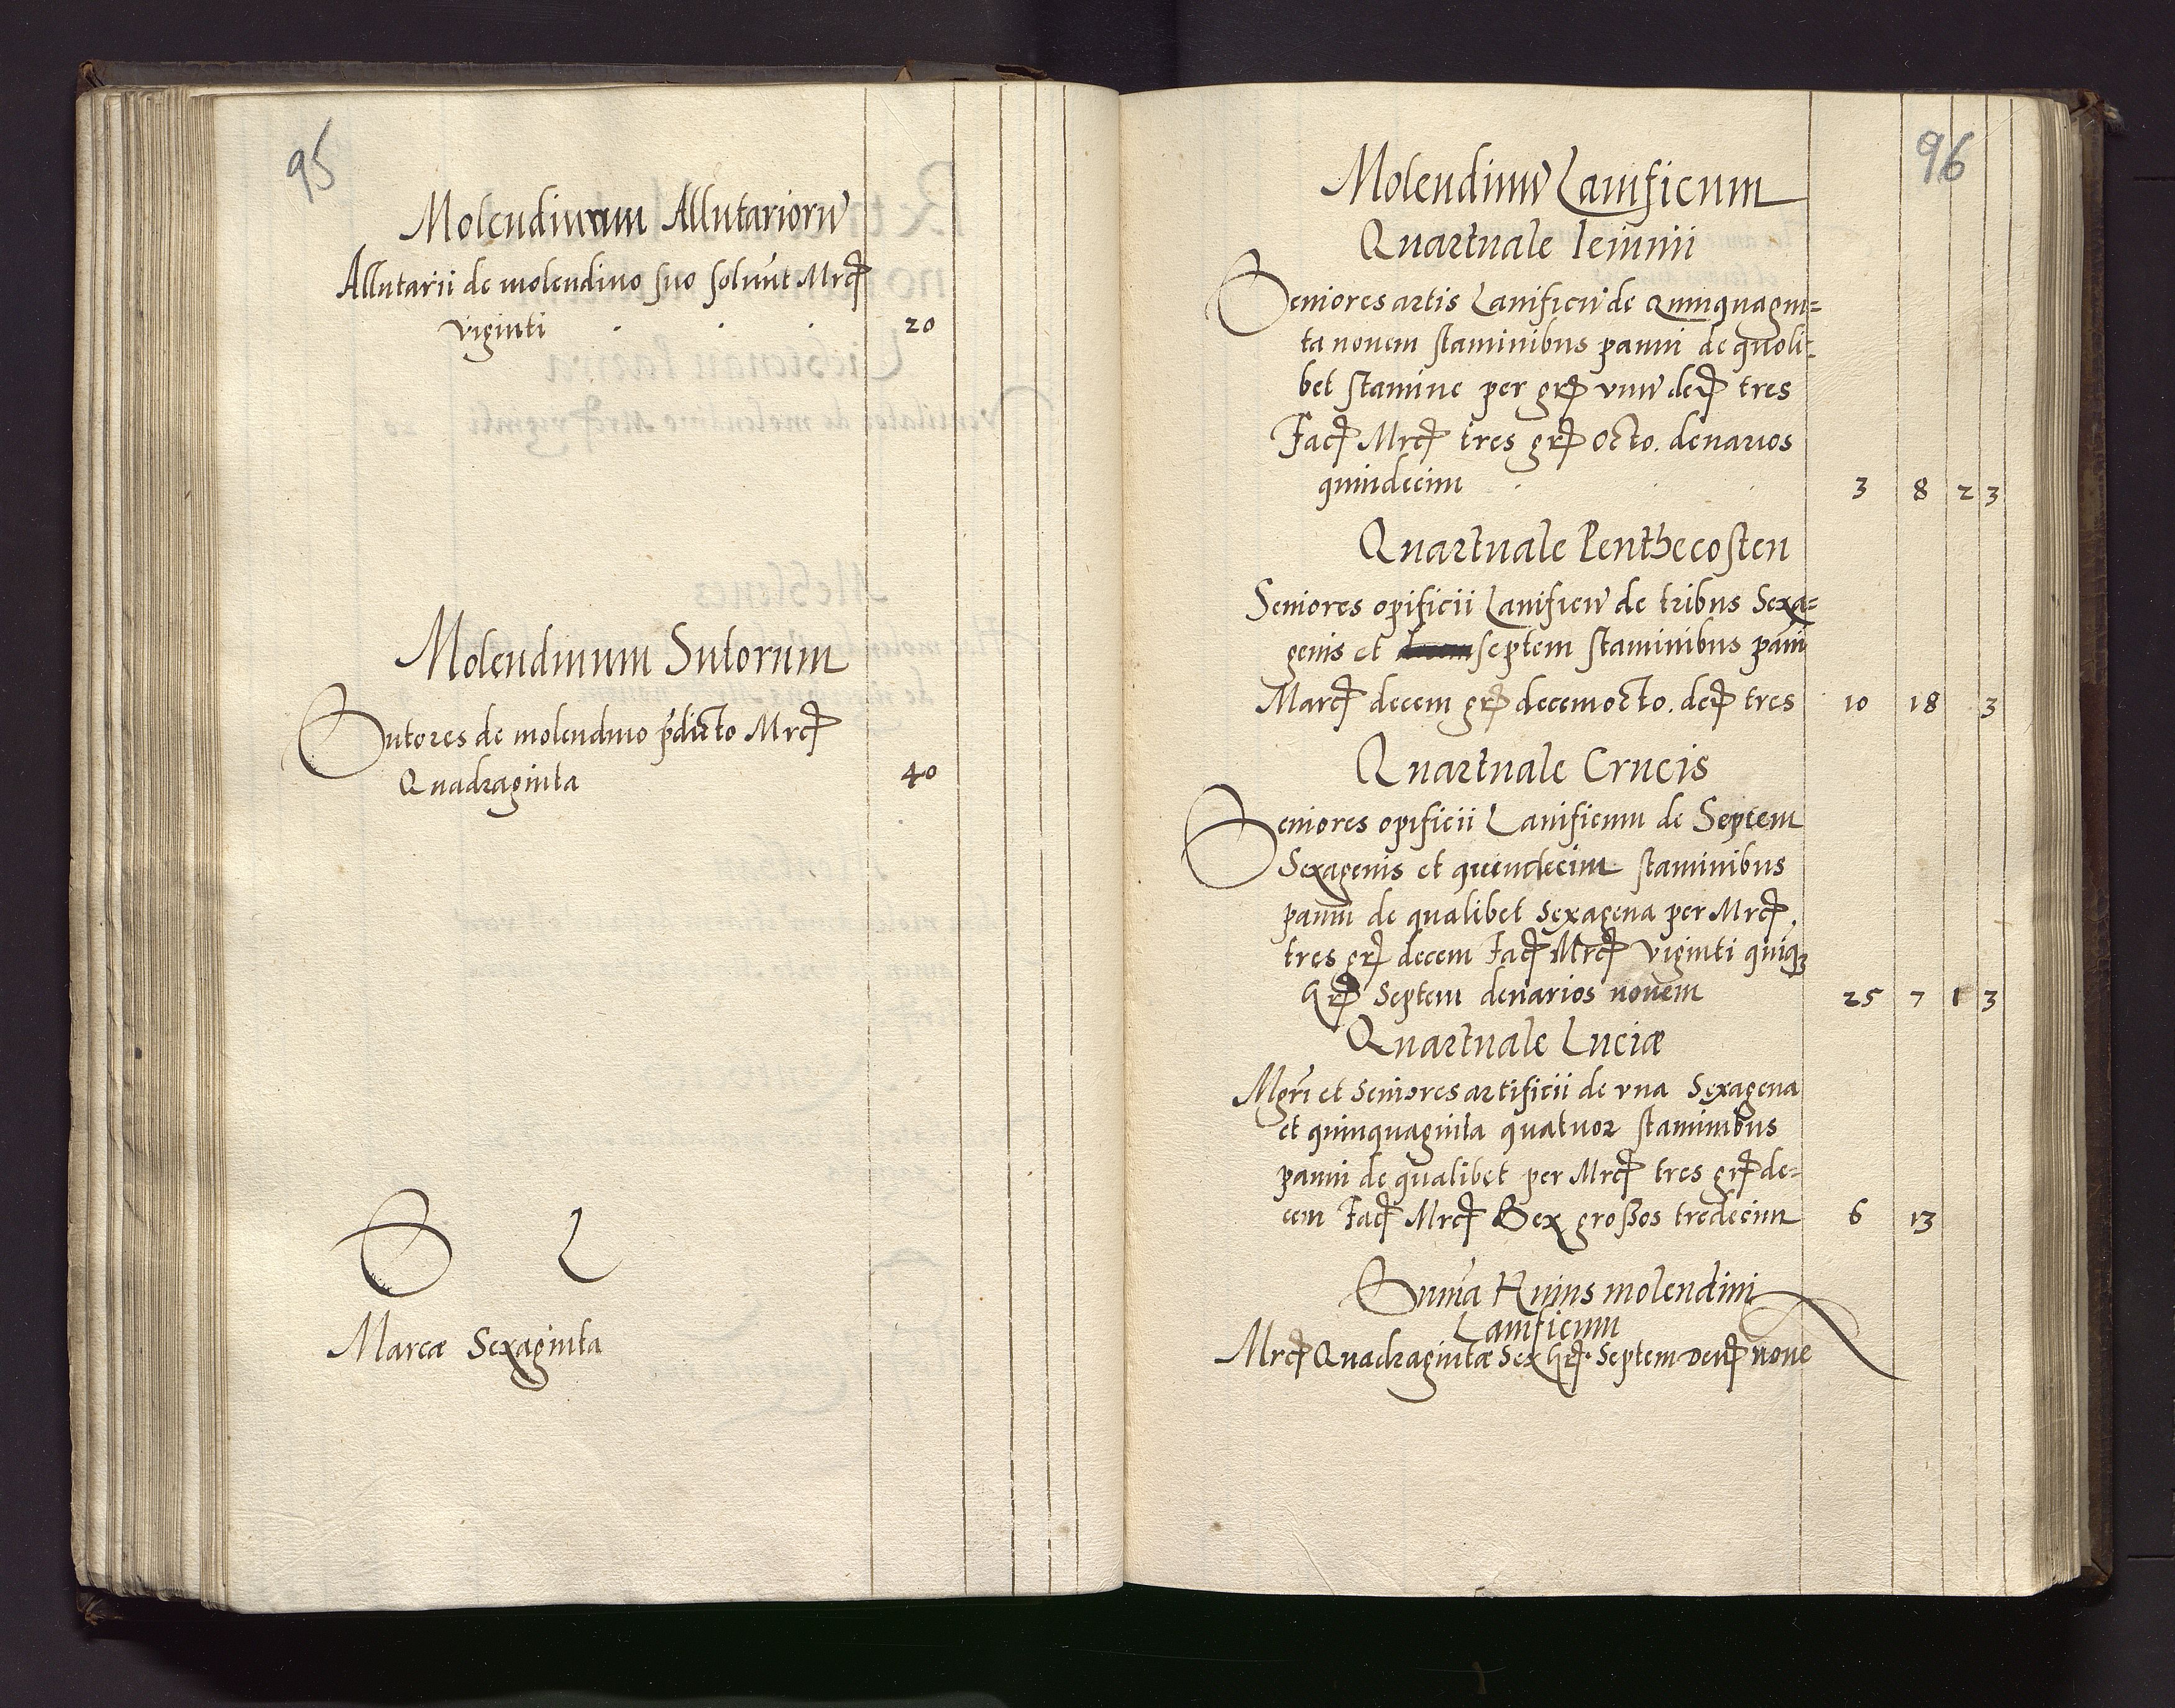 95
Molendinum Allutariorū
Allutarii de molendino suo soluūt Mrcȩ
viginti . . . 20
Molendinum Sutorum
Sutores de molendino p̄dicto Mrcȩ
Quadraginta 40
S L
Marcæ Sexaginta
96
Molendinū Lanificum
Quartuale Ieiunii
Seniores artis Lanificū de Quinquagin=
ta nouem staminibus panni de quoli=
bet stamine per grȩ vnū deȩ tres
Facȩ Mrcȩ tres grȩ octo. denarios
quindecim . . . 3 8 2 3
Quartuale Penthecosten
Seniores opificii Lanificū de tribus Sexa=
genis et septem staminibus pāni
Marcȩ decem grȩ decemocto. deȩ tres 10 18 3
Quartuale Crucis
Seniores opificii Lanificum de Septem
Sexagenis et quindecim staminibus
panni de qualibet Sexagena per Mrcȩ.
tres grȩ decem Facȩ Mrcȩ viginti quīqȝ
Grȩ Septem denarios novem 25 7 1 3
Quartuale Luciæ
Mgrī et Seniores artificii de vna Sexagena
et quinquaginta quatuor staminibus
panni de qualibet per Mrcȩ tres grȩ de=
cem Facȩ Mrcȩ Sex großos tredecim 6 13
Sum̄a Huius molendini
Lanificum
Mrcȩ Quadragintæ Sex Grȩ. Septem Denȩ noue